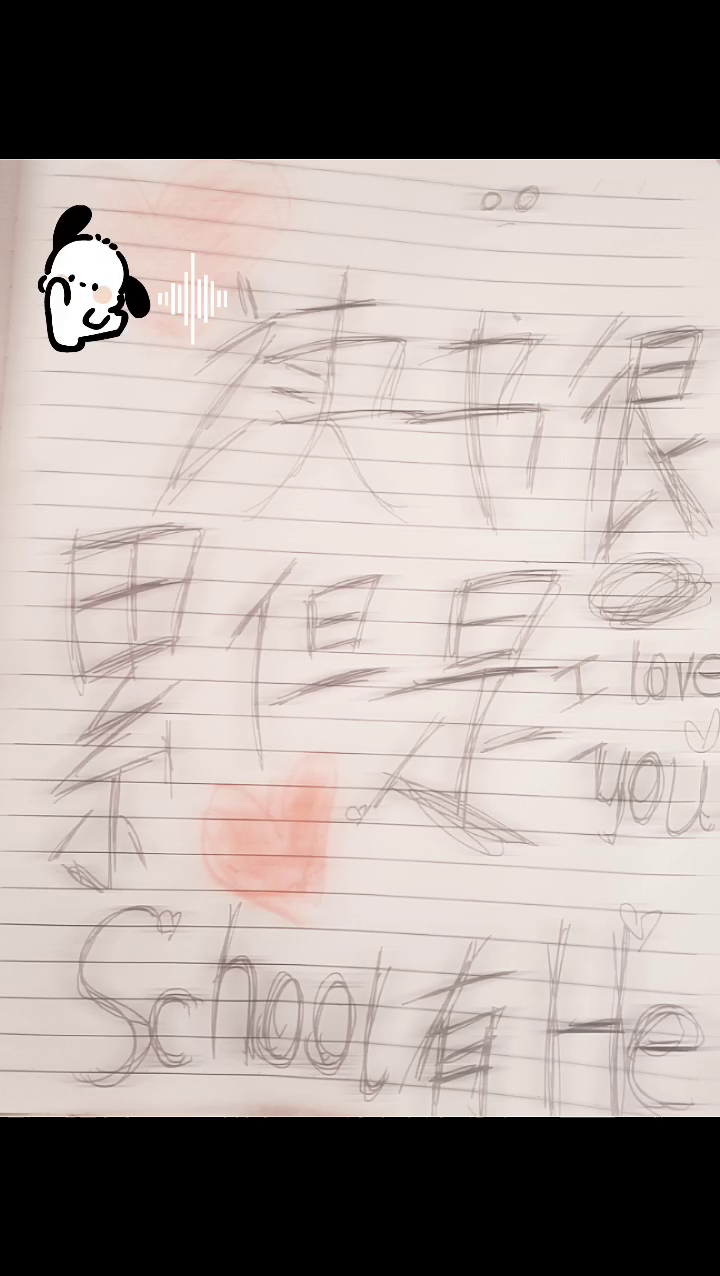 读书很
累但是
I love
you
School有He